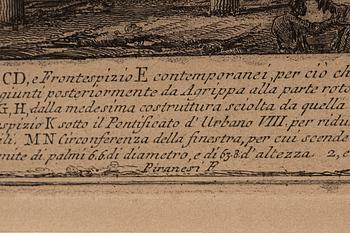 CD, e Frontespizio E contemporanei, per ciò ch
giunti posteriormente da Agrippa alla parte roto
G, H, dalla medesima costruttura sciolta da quella
spizio K sotto il Pontificato d'Urbano VIII. per ridu
li. M N Circonferenza della finestra, per cui scende
mite di palmi 6.6. di diametro, e di 63.8. d'altezza 2, e
Piranesi F.